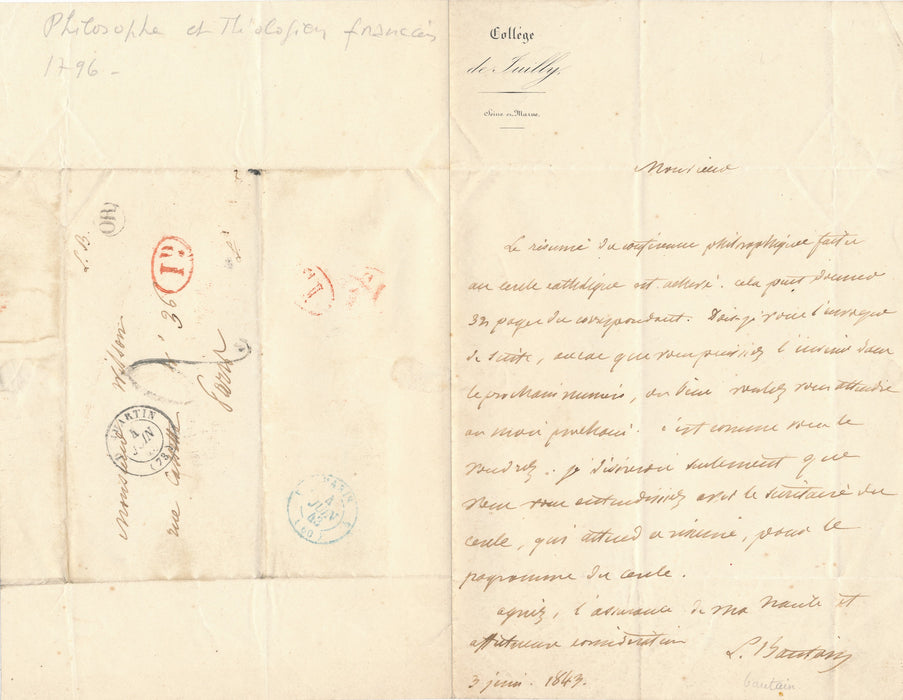 Philosophe et Théologien français
1796 -
Collège
de Juilly.
Seine et Marne.
Monsieur
Le résumé du conférence philosophique faites
au cercle catholique est achevé. cela peut donner
32 pages du correspondant. Dois-je vous l'envoyer
de suite, que vous puissiez l'insérer dans
le prochain numéro, ou bien voulez vous attendre
au mois prochain. c'est comme vous le
voudrez. je désirerais seulement que
vous vous entendissiez avec le secrétaire du
cercle, qui attend ce résumé, pour le
programme du cercle.
agréez, l'assurance de ma haute et
affectueuse considération
L. Bautain
3 juin. 1843.
bautain
L. B.
OR
1D
Monsieur Wilson
rue Cassette n° 36
Paris
MARTIN
4
JUIN
(73)
PARIS
4
JUIN
43
(60)